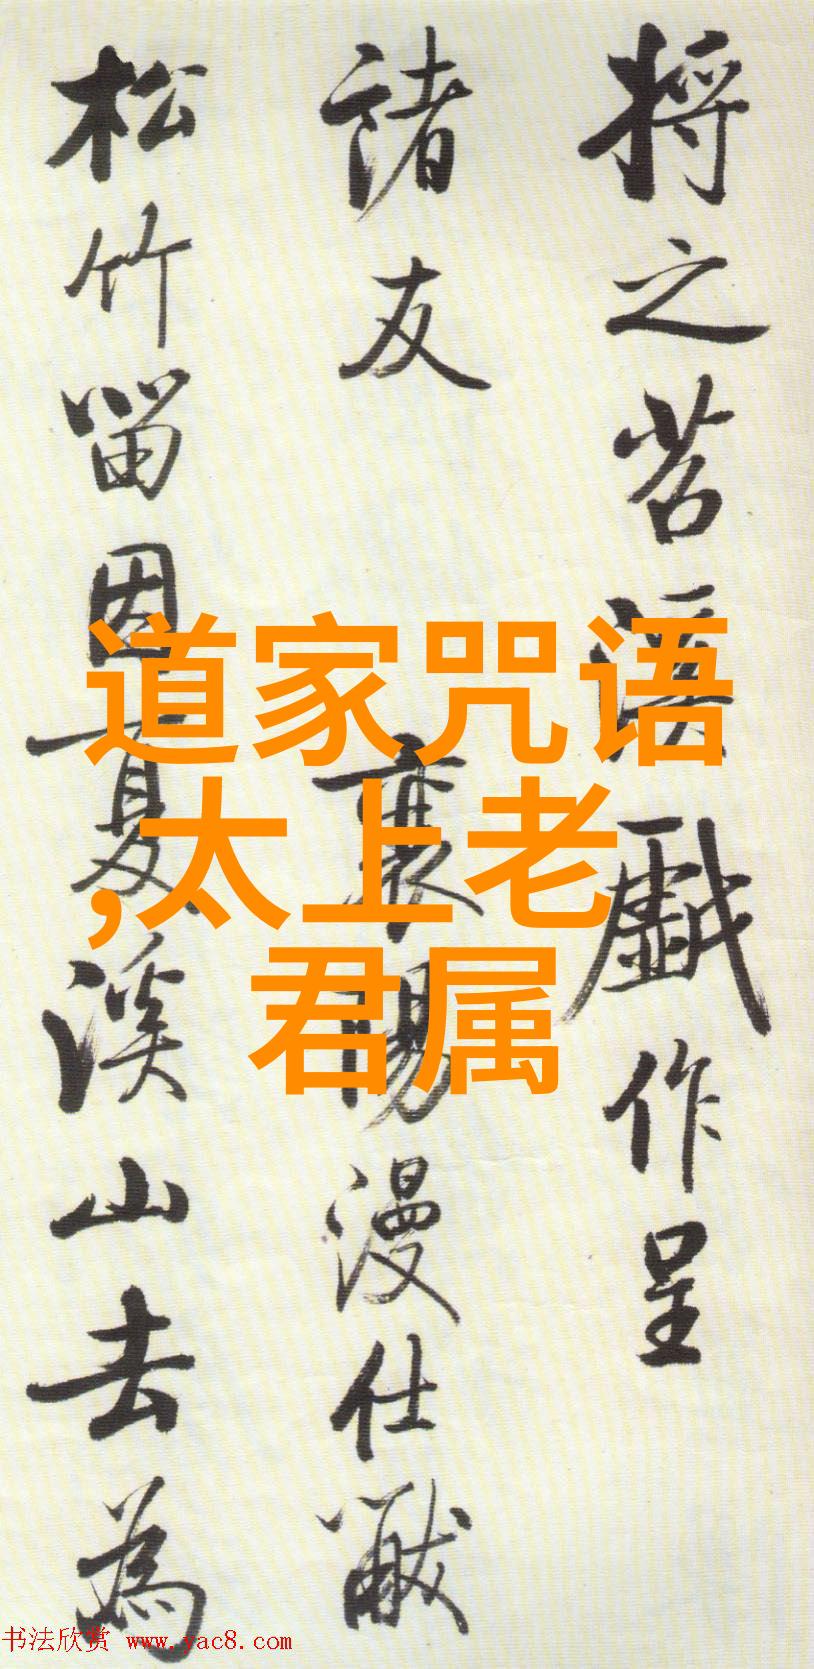 将之苕溪戲作呈
諸友 襄陽漫仕黻
松竹留因夏溪山去為
道家咒语
,太上老
君属
书法欣赏 www.yac8.com